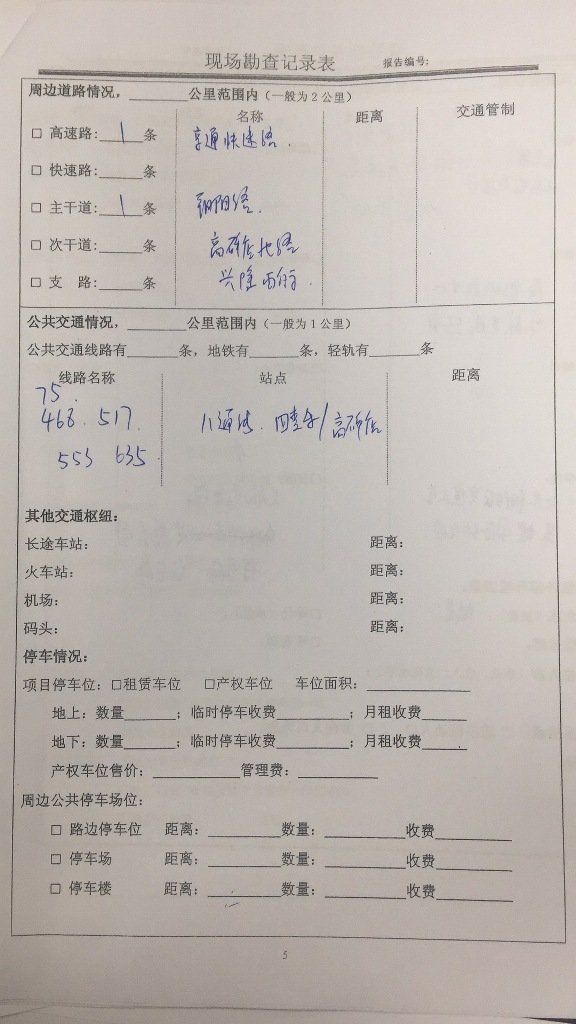 现场勘查记录表 报告编号:
周边道路情况，________公里范围内（一般为2公里）
名称 距离 交通管制
□ 高速路: 1 条 京通快速路.
□ 快速路:______条
□ 主干道: 1 条 朝阳路.
□ 次干道:______条 高碑店北路
□ 支 路:______条 兴隆西街.
公共交通情况，________公里范围内（一般为1公里）
公共交通线路有______条，地铁有______条，轻轨有______条
线路名称 站点 距离
75.
468. 517. 八通线. 四惠东/高碑店
553 635.
其他交通枢纽:
长途车站: 距离:
火车站: 距离:
机场: 距离:
码头: 距离:
停车情况:
项目停车位: □租赁车位 □产权车位 车位面积:____________
地上: 数量______; 临时停车收费________; 月租收费_____
地下: 数量______; 临时停车收费________; 月租收费_____.
产权车位售价:__________管理费:_________
周边公共停车场位:
□ 路边停车位 距离:________数量:________收费________
□ 停车场 距离:________数量:________收费________
□ 停车楼 距离:________数量:________收费________
5